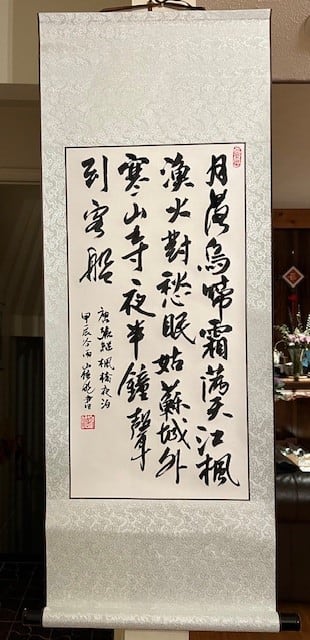 月落烏啼霜滿天江楓
漁火對愁眠姑蘇城外
寒山寺夜半鐘聲
到客船
唐張継楓橋夜泊
甲辰冷雨